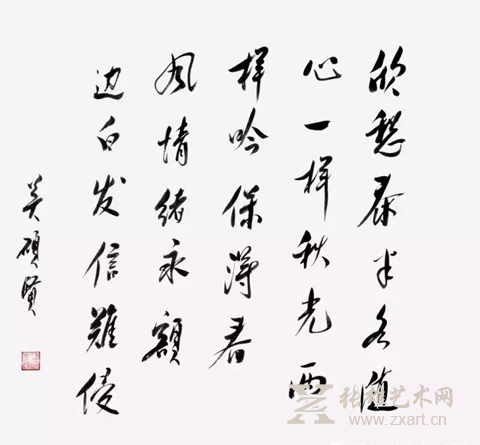 欣愁泰半各随
心一样秋光两
样吟保得春
风情绪永额
边白发信难侵
吴硕贤
张雄艺术网
www.zxart.cn